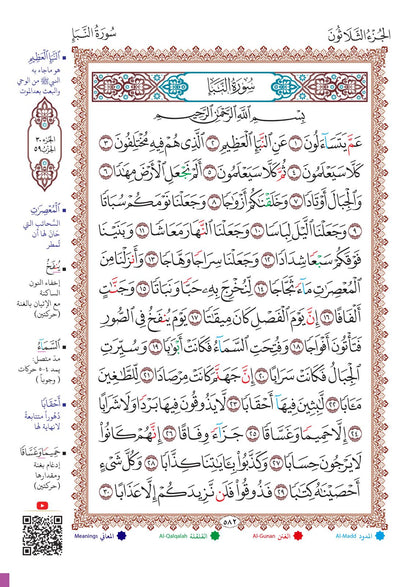 الجُزْءُ الثَّلَاثُونَ
سُورَةُ النَّبَإِ
سُورَةُ النَّبَإِ
بِسْمِ اللَّهِ الرَّحْمَٰنِ الرَّحِيمِ
عَمَّ يَتَسَاءَلُونَ ١ عَنِ النَّبَإِ الْعَظِيمِ ٢ الَّذِي هُمْ فِيهِ مُخْتَلِفُونَ ٣
كَلَّا سَيَعْلَمُونَ ٤ ثُمَّ كَلَّا سَيَعْلَمُونَ ٥ أَلَمْ نَجْعَلِ الْأَرْضَ مِهَٰدًا ٦
وَالْجِبَالَ أَوْتَادًا ٧ وَخَلَقْنَٰكُمْ أَزْوَٰجًا ٨ وَجَعَلْنَا نَوْمَكُمْ سُبَاتًا
٩ وَجَعَلْنَا الَّيْلَ لِبَاسًا ١٠ وَجَعَلْنَا النَّهَارَ مَعَاشًا ١١ وَبَنَيْنَا
فَوْقَكُمْ سَبْعًا شِدَادًا ١٢ وَجَعَلْنَا سِرَاجًا وَهَّاجًا ١٣ وَأَنزَلْنَا مِنَ
الْمُعْصِرَٰتِ مَاءً ثَجَّاجًا ١٤ لِّنُخْرِجَ بِهِ حَبًّا وَنَبَاتًا ١٥ وَجَنَّٰتٍ
أَلْفَافًا ١٦ إِنَّ يَوْمَ الْفَصْلِ كَانَ مِيقَٰتًا ١٧ يَوْمَ يُنفَخُ فِي الصُّورِ
فَتَأْتُونَ أَفْوَاجًا ١٨ وَفُتِحَتِ السَّمَاءُ فَكَانَتْ أَبْوَٰبًا ١٩ وَسُيِّرَتِ
الْجِبَالُ فَكَانَتْ سَرَابًا ٢٠ إِنَّ جَهَنَّمَ كَانَتْ مِرْصَادًا ٢١ لِّلطَّٰغِينَ
مَـَٔابًا ٢٢ لَّٰبِثِينَ فِيهَا أَحْقَابًا ٢٣ لَّا يَذُوقُونَ فِيهَا بَرْدًا وَلَا شَرَابًا
٢٤ إِلَّا حَمِيمًا وَغَسَّاقًا ٢٥ جَزَاءً وِفَاقًا ٢٦ إِنَّهُمْ كَانُوا
لَا يَرْجُونَ حِسَابًا ٢٧ وَكَذَّبُوا بِـَٔايَٰتِنَا كِذَّابًا ٢٨ وَكُلَّ شَيْءٍ
أَحْصَيْنَٰهُ كِتَٰبًا ٢٩ فَذُوقُوا فَلَن نَّزِيدَكُمْ إِلَّا عَذَابًا ٣٠
٥٨٢
النَّبَإِ الْعَظِيمِ
هو ما جاء به
النبي ﷺ من الوحي
والبعث بعد الموت
الجزء ٣٠
الحزب ٥٩
الْمُعْصِرَٰتِ
السحائب التي
حان لها أن
تُمطر
يُنفَخُ
إخفاء النون
الساكنة
مع الإتيان بالغنة
(حركتين)
السَّمَاءُ
مد متصل:
يمد ٤-٥ حركات
(وجوباً)
أَحْقَابًا
دُهوراً متتابعة
لا نهاية لها
حَمِيمًا وَغَسَّاقًا
إدغام بغنة
ومقدارها
(حركتين)
المدود Al-Madd
الغنن Al-Gunan
القلقلة Al-Qalqalah
المعاني Meanings